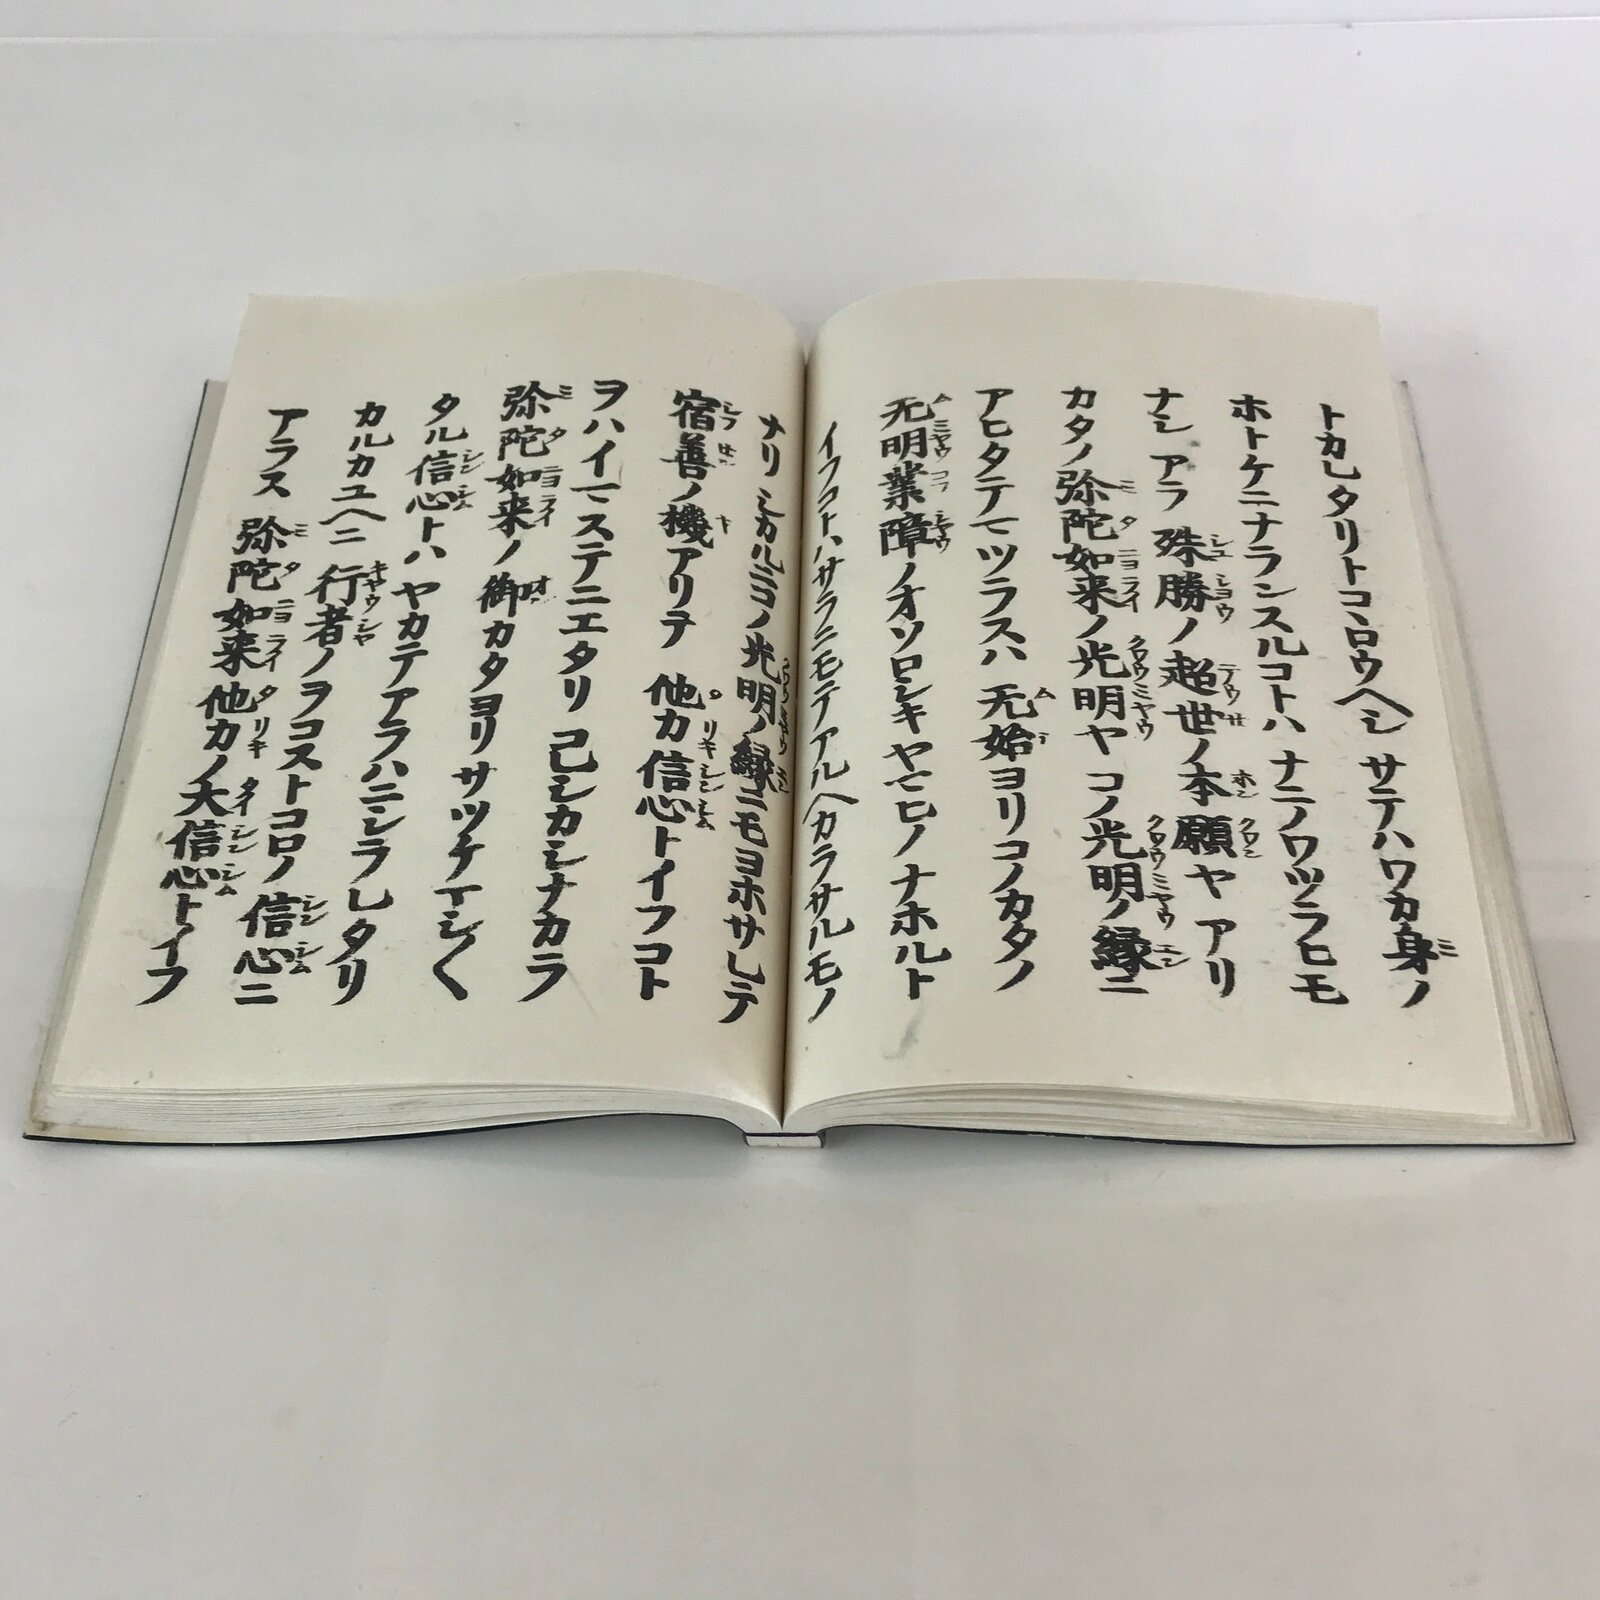 トカレタリトコヽロウヘシ サテハワカ身ノ
ホトケニナランスルコトハ ナニノワツラヒモ
ナシ アラ 殊勝ノ超世ノ本願ヤ アリ
カタノ弥陀如来ノ光明ヤ コノ光明ノ縁ニ
アヒタテマツラスハ 无始ヨリコノカタノ
无明業障ノオソロシキヤマヒノナホルト
イフコトハサラニモテアルヘカラサルモノ
ナリ シカルニコノ光明ノ縁ニモヨホサレテ
宿善ノ機アリテ 他力信心トイフコト
ヲハイマステニエタリ コレシカシナカラ
弥陀如来ノ御カタヨリサツケマシ〱
タル信心トハ ヤカテアラハニシラレタリ
カルカユヘニ 行者ノヲコストコロノ信心ニ
アラス 弥陀如来他力ノ大信心トイフ